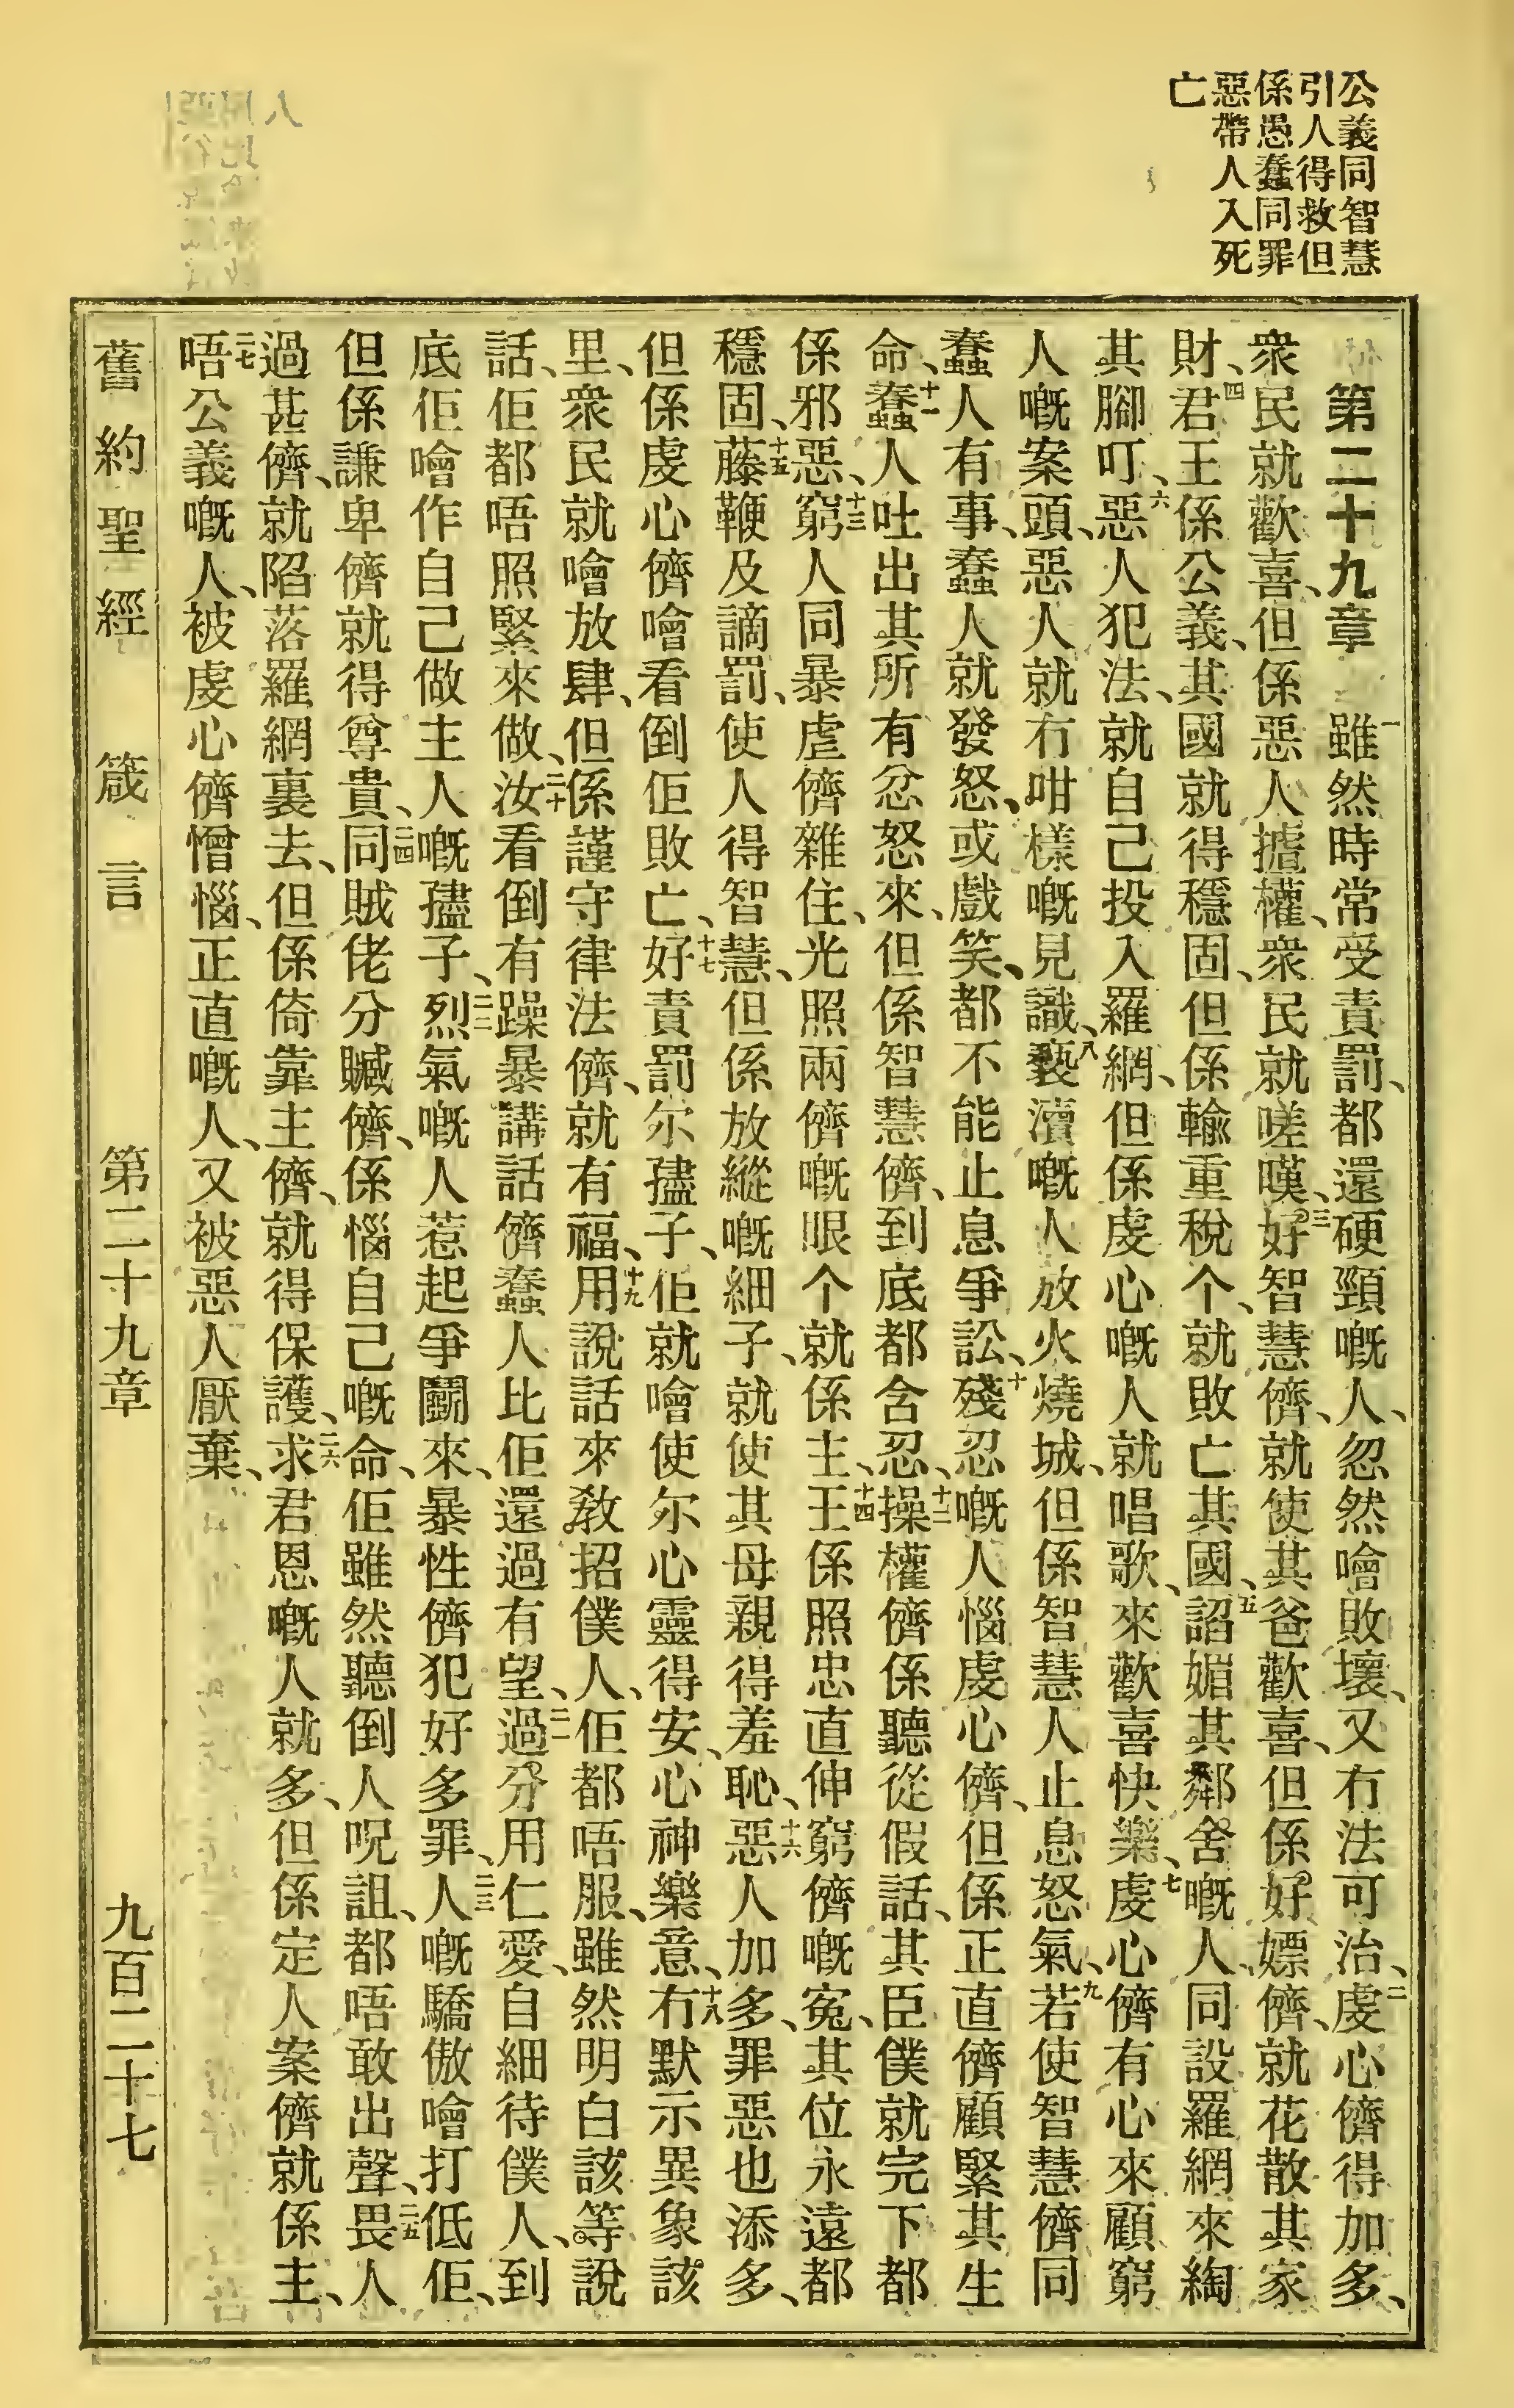 公義同智慧
引人得救但
係愚蠢同罪
惡帶人入死
亡
第二十九章 一雖然時常受責罰、都還硬頸嘅人、忽然噲敗壞、又冇法可治、二虔心儕得加多、
衆民就歡喜、但係惡人揸權、衆民就嗟嘆、三好智慧儕、就使其爸歡喜、但係好嫖儕、就花散其家
財、四君王係公義、其國就得穩固、但係輸重稅个、就敗亡其國、五諂媚其鄰舍嘅人、同設羅網來綯
其腳叮、六惡人犯法、就自己投入羅網、但係虔心嘅人就唱歌、來歡喜快樂、七虔心儕有心來顧窮
人嘅案頭、惡人就冇咁樣嘅見識、八褻瀆嘅人放火燒城、但係智慧人止息怒氣、九若使智慧儕同
蠢人有事、蠢人就發怒、或戲笑、都不能止息爭訟、十殘忍嘅人惱虔心儕、但係正直儕顧緊其生
命、十一蠢人吐出其所有忿怒來、但係智慧儕、到底都含忍、十二操權儕係聽從假話、其臣僕就完下都
係邪惡、十三窮人同暴虐儕雜住、光照兩儕嘅眼个就係主、十四王係照忠直伸窮儕嘅寃、其位永遠都
穩固、十五藤鞭及謫罰、使人得智慧、但係放縱嘅細子、就使其母親得羞恥、十六惡人加多、罪惡也添多、
但係虔心儕噲看倒佢敗亡、十七好責罰尔孻子、佢就噲使尔心靈得安、心神樂意、十八冇默示異象該
里、衆民就噲放肆、但係謹守律法儕、就有福、十九用說話來教招僕人、佢都唔服、雖然明白該等說
話、佢都唔照緊來做、二十汝看倒有躁暴講話儕、蠢人比佢還過有望、二一過分用仁愛、自細待僕人、到
底佢噲作自己做主人嘅孻子、二二烈氣嘅人惹起爭鬭來、暴性儕犯好多罪、二三人嘅驕傲噲打低佢、
但係謙卑儕就得尊貴、二四同賊佬分贓儕、係惱自己嘅命、佢雖然聽倒人呪詛、都唔敢出聲、二五畏人
過甚儕、就陷落羅網裏去、但係倚靠主儕、就得保護、二六求君恩嘅人就多、但係定人案儕就係主、
二七唔公義嘅人、被虔心儕憎惱、正直嘅人、又被惡人厭棄、
舊約聖經 箴言 第二十九章 九百二十七